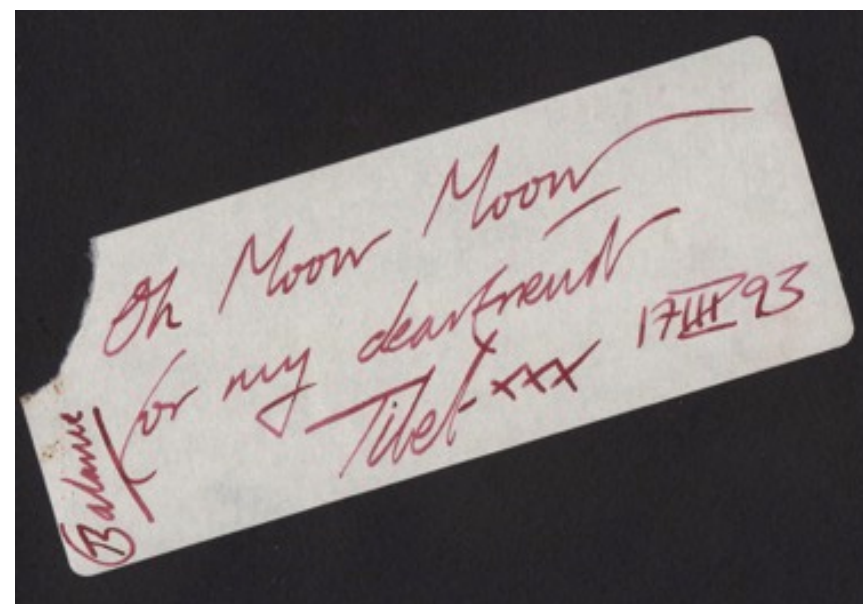 Oh Moon Moon
for my dear friend
Tibet xxx 17 III 93
Balance